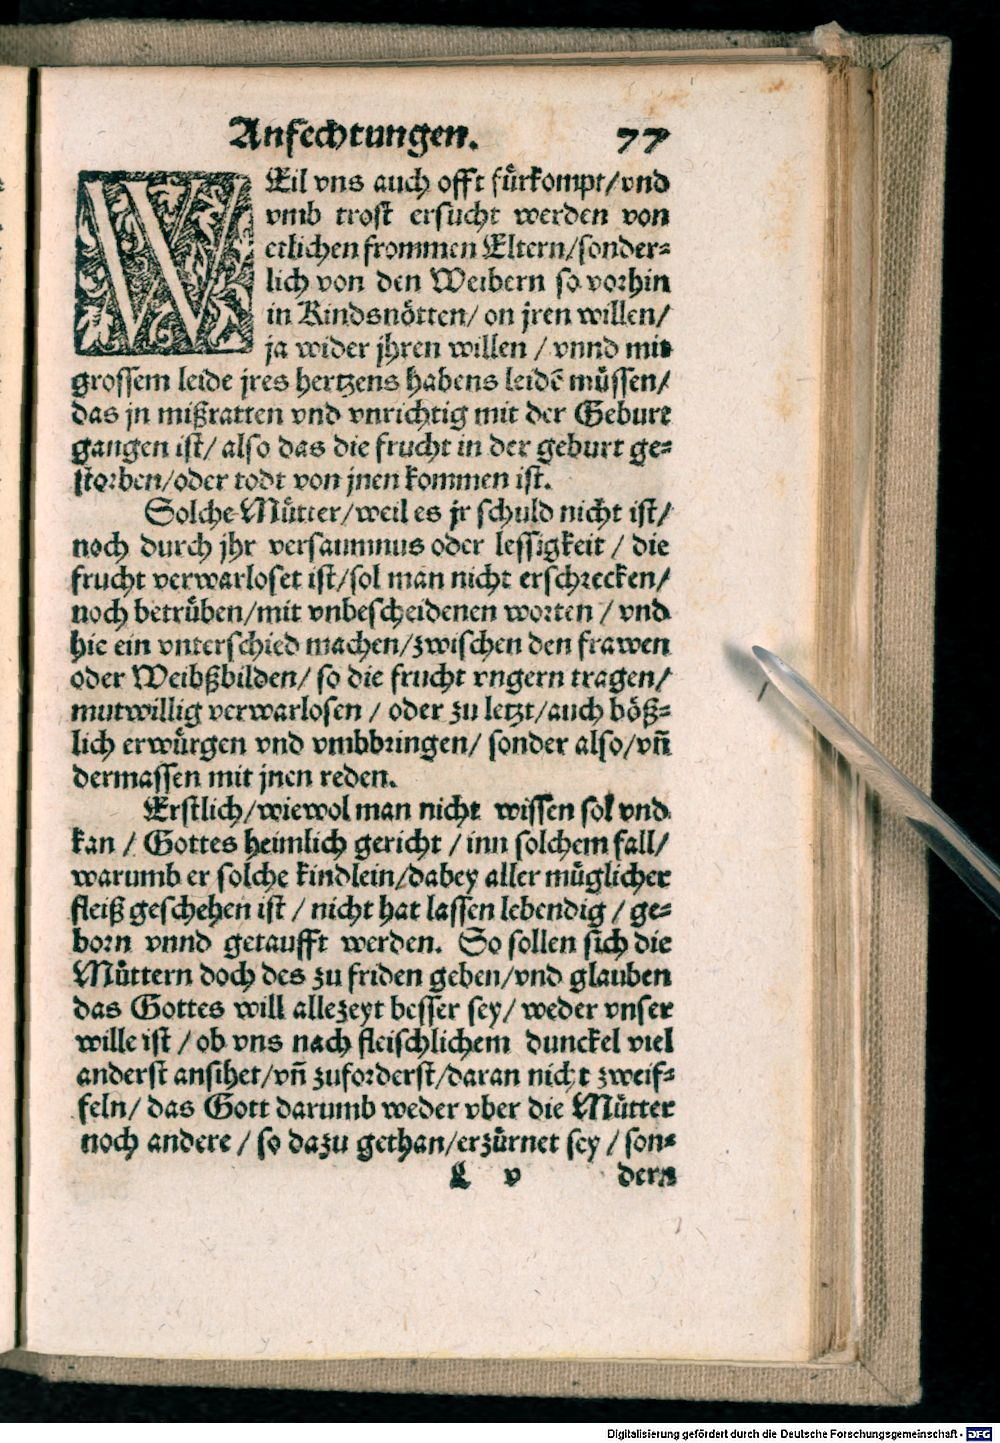 Anfechtungen. 77
WEil vns auch offt fuͤrkompt/vnd
vmb trost ersucht werden von
etlichen frommen Eltern/sonder⸗
lich von den Weibern so vorhin
in Kindsnoͤtten/ on jren willen/
ja wider jhren willen / vnnd mit
grossem leide jres hertzens habens leidē muͤssen/
das jn mißratten vnd vnrichtig mit der Geburt
gangen ist/ also das die frucht in der geburt ge⸗
storben/oder todt von jnen kommen ist.
Solche Muͤtter/weil es jr schuld nicht ist/
noch durch jhr versaumnus oder lessigkeit / die
frucht verwarloset ist/sol man nicht erschrecken/
noch betruͤben/mit vnbescheidenen worten / vnd
hie ein vnterschied machen/zwischen den frawen
oder Weibßbilden/ so die frucht vngern tragen/
mutwillig verwarlosen / oder zu letzt/auch boͤß⸗
lich erwuͤrgen vnd vmbbringen/ sonder also/vn̄
dermassen mit jnen reden.
Erstlich/wiewol man nicht wissen sol vnd
kan / Gottes heimlich gericht / inn solchem fall/
warumb er solche kindlein/dabey aller muͤglicher
fleiß geschehen ist / nicht hat lassen lebendig / ge⸗
born vnnd getaufft werden. So sollen sich die
Muͤttern doch des zu friden geben/vnd glauben
das Gottes will allezeyt besser sey/ weder vnser
wille ist / ob vns nach fleischlichem dunckel viel
anderst ansihet/vn̄ zuforderst/daran nicht zweif⸗
feln/ das Gott darumb weder vber die Muͤtter
noch andere / so dazu gethan/erzuͤrnet sey / son⸗
L v dern
Digitalisierung gefördert durch die Deutsche Forschungsgemeinschaft - DFG